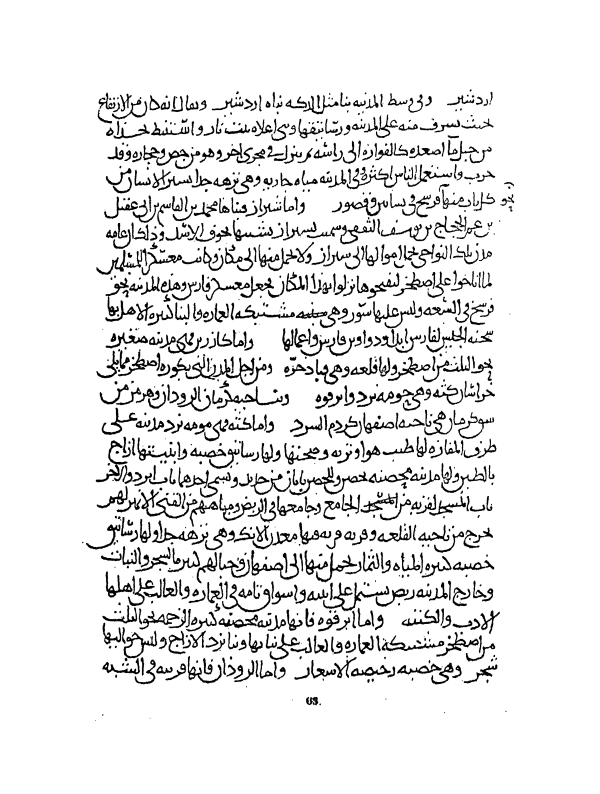 اردشير وفي وسط المدينة بنا مثل الدكة بناه اردشير ويقال انه كان من الارتفاع
بحيث يشرف منه على المدينة ورساتيقها وبنى اعلاه بيت نار واستنبط بحذاه
من جبل ما اصعده كالفوارة الى راسه ثم ينزل في مجرى اخر وهو من جص وحجارة وقد
خرب واستعمل الناس اكثره وفي المدينة مياه جارية وهي نزهة جدا يسير الانسان من
كل باب منها نحو فرسخ في بساتين وقصور واما شيراز فبناها محمد بن القاسم بن ابي عقيل
بن عم الحجاج بن يوسف الثقفي وسميت بشيراز تشبيها بجوف الاسد وذلك ان عامة
مدن تلك النواحي تحمل اموالها الى شيراز ولا يحمل منها الى مكان وكانت معسكر المسلمين
لما اناخوا على اصطخر ليفتحوها نزلوا بهذا المكان فجعل معسكر فارس وهذه المدينة نحو
فرسخ في السعة وليس عليها سور وهي مشتبكة العمارة والبنا كثيرة الاهل بها
شحنة الجيش لفارس ابدا ودواوين فارس واعمالها واما كازرين فهي مدينة صغيرة
نحو الثلث من اصطخر ولها قلعة وهي قباد خره ومن اجل المدن التي بكورة اصطخر مما يلي
خراسان كثه وهي حومة يزد وابرقوه وبناحية كرمان الروذان وهرمز من
سوى كرمان هي ناحية اصفهان كرد م السرد واما كثه فهي حومة يزد مدينة على
طرف المفازة لها طيب هوا وتربة وصحتها ولها رساتيق خصبة وابنيتها ازاج
بالطين ولها مدينة محصنة بحصن وللحصن بابان من حديد ويسمى احدهما باب ايزد والاخر
باب المسجد لقربه من المسجد الجامع وجامعها في الربض ومياههم من القنى الا نهر لهم
يخرج من ناحية القلعة وقربه قرية فيها معدن الانك وهي نزهة جدا ولها رساتيق
خصبة كثيرة المياه والثمار يحمل منها الى اصفهان وجبالهم كثيرة الشجر والنبات
وخارج المدينة ربض يشتمل على ابنية واسواق تامة في العمارة والغالب على اهلها
الادب والكتبة واما ابرقوه فانها مدينة محصنة كثيرة الزحمة نحو الثلث
من اصطخر مشتبكة العمارة والغالب على بنائها وبنا يزد الازاج وليس حواليها
شجر وهي خصبة رخيصة الاسعار واما الروذان فانها قريبة في الشبه
63.